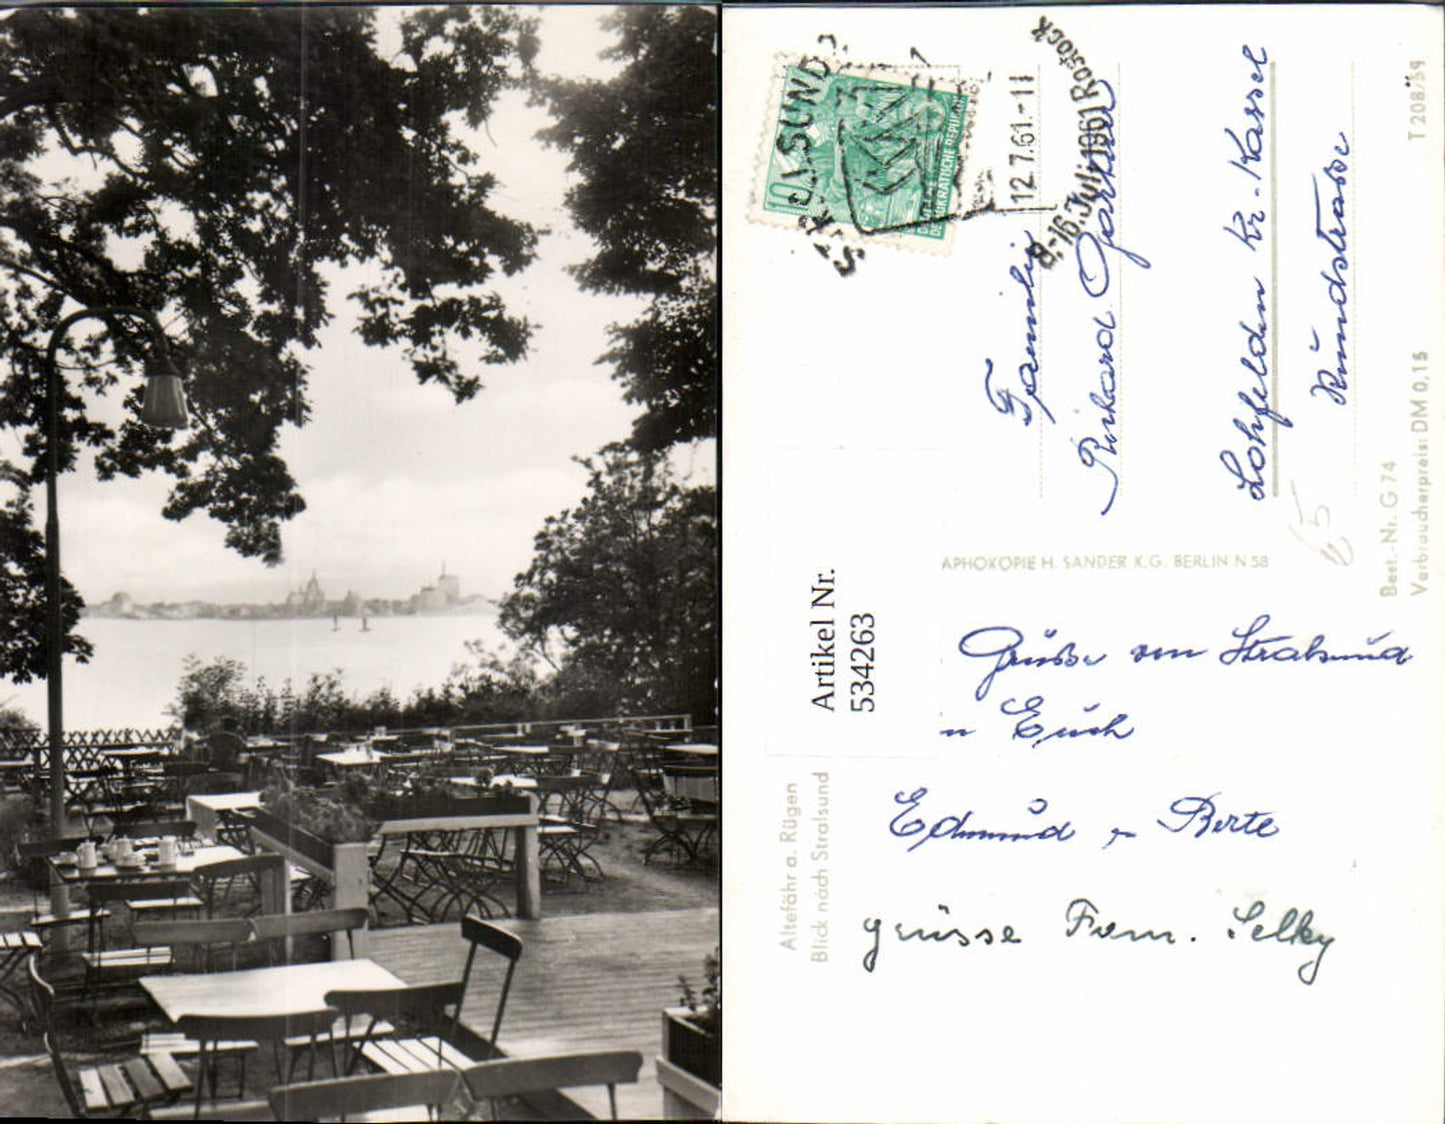 STRALSUND 1
12.7.61.-11
8.-16. Juli 1961 Rostock
10
DEUTSCHE
DEMOKRATISCHE REPUBLIK
T 208/59
Familie
Reinhard Gartner
Lohfelden Kr. Kassel
Rundstrasse
Best.-Nr. G 74
Verbraucherpreis: DM 0,15
APHOKOPIE H. SANDER K.G. BERLIN N 58
Artikel Nr.
534263
Altefähr a. Rügen
Blick nach Stralsund
Grüsse von Stralsund
an Euch
Edmund u Berte
grüsse Fam. Selky